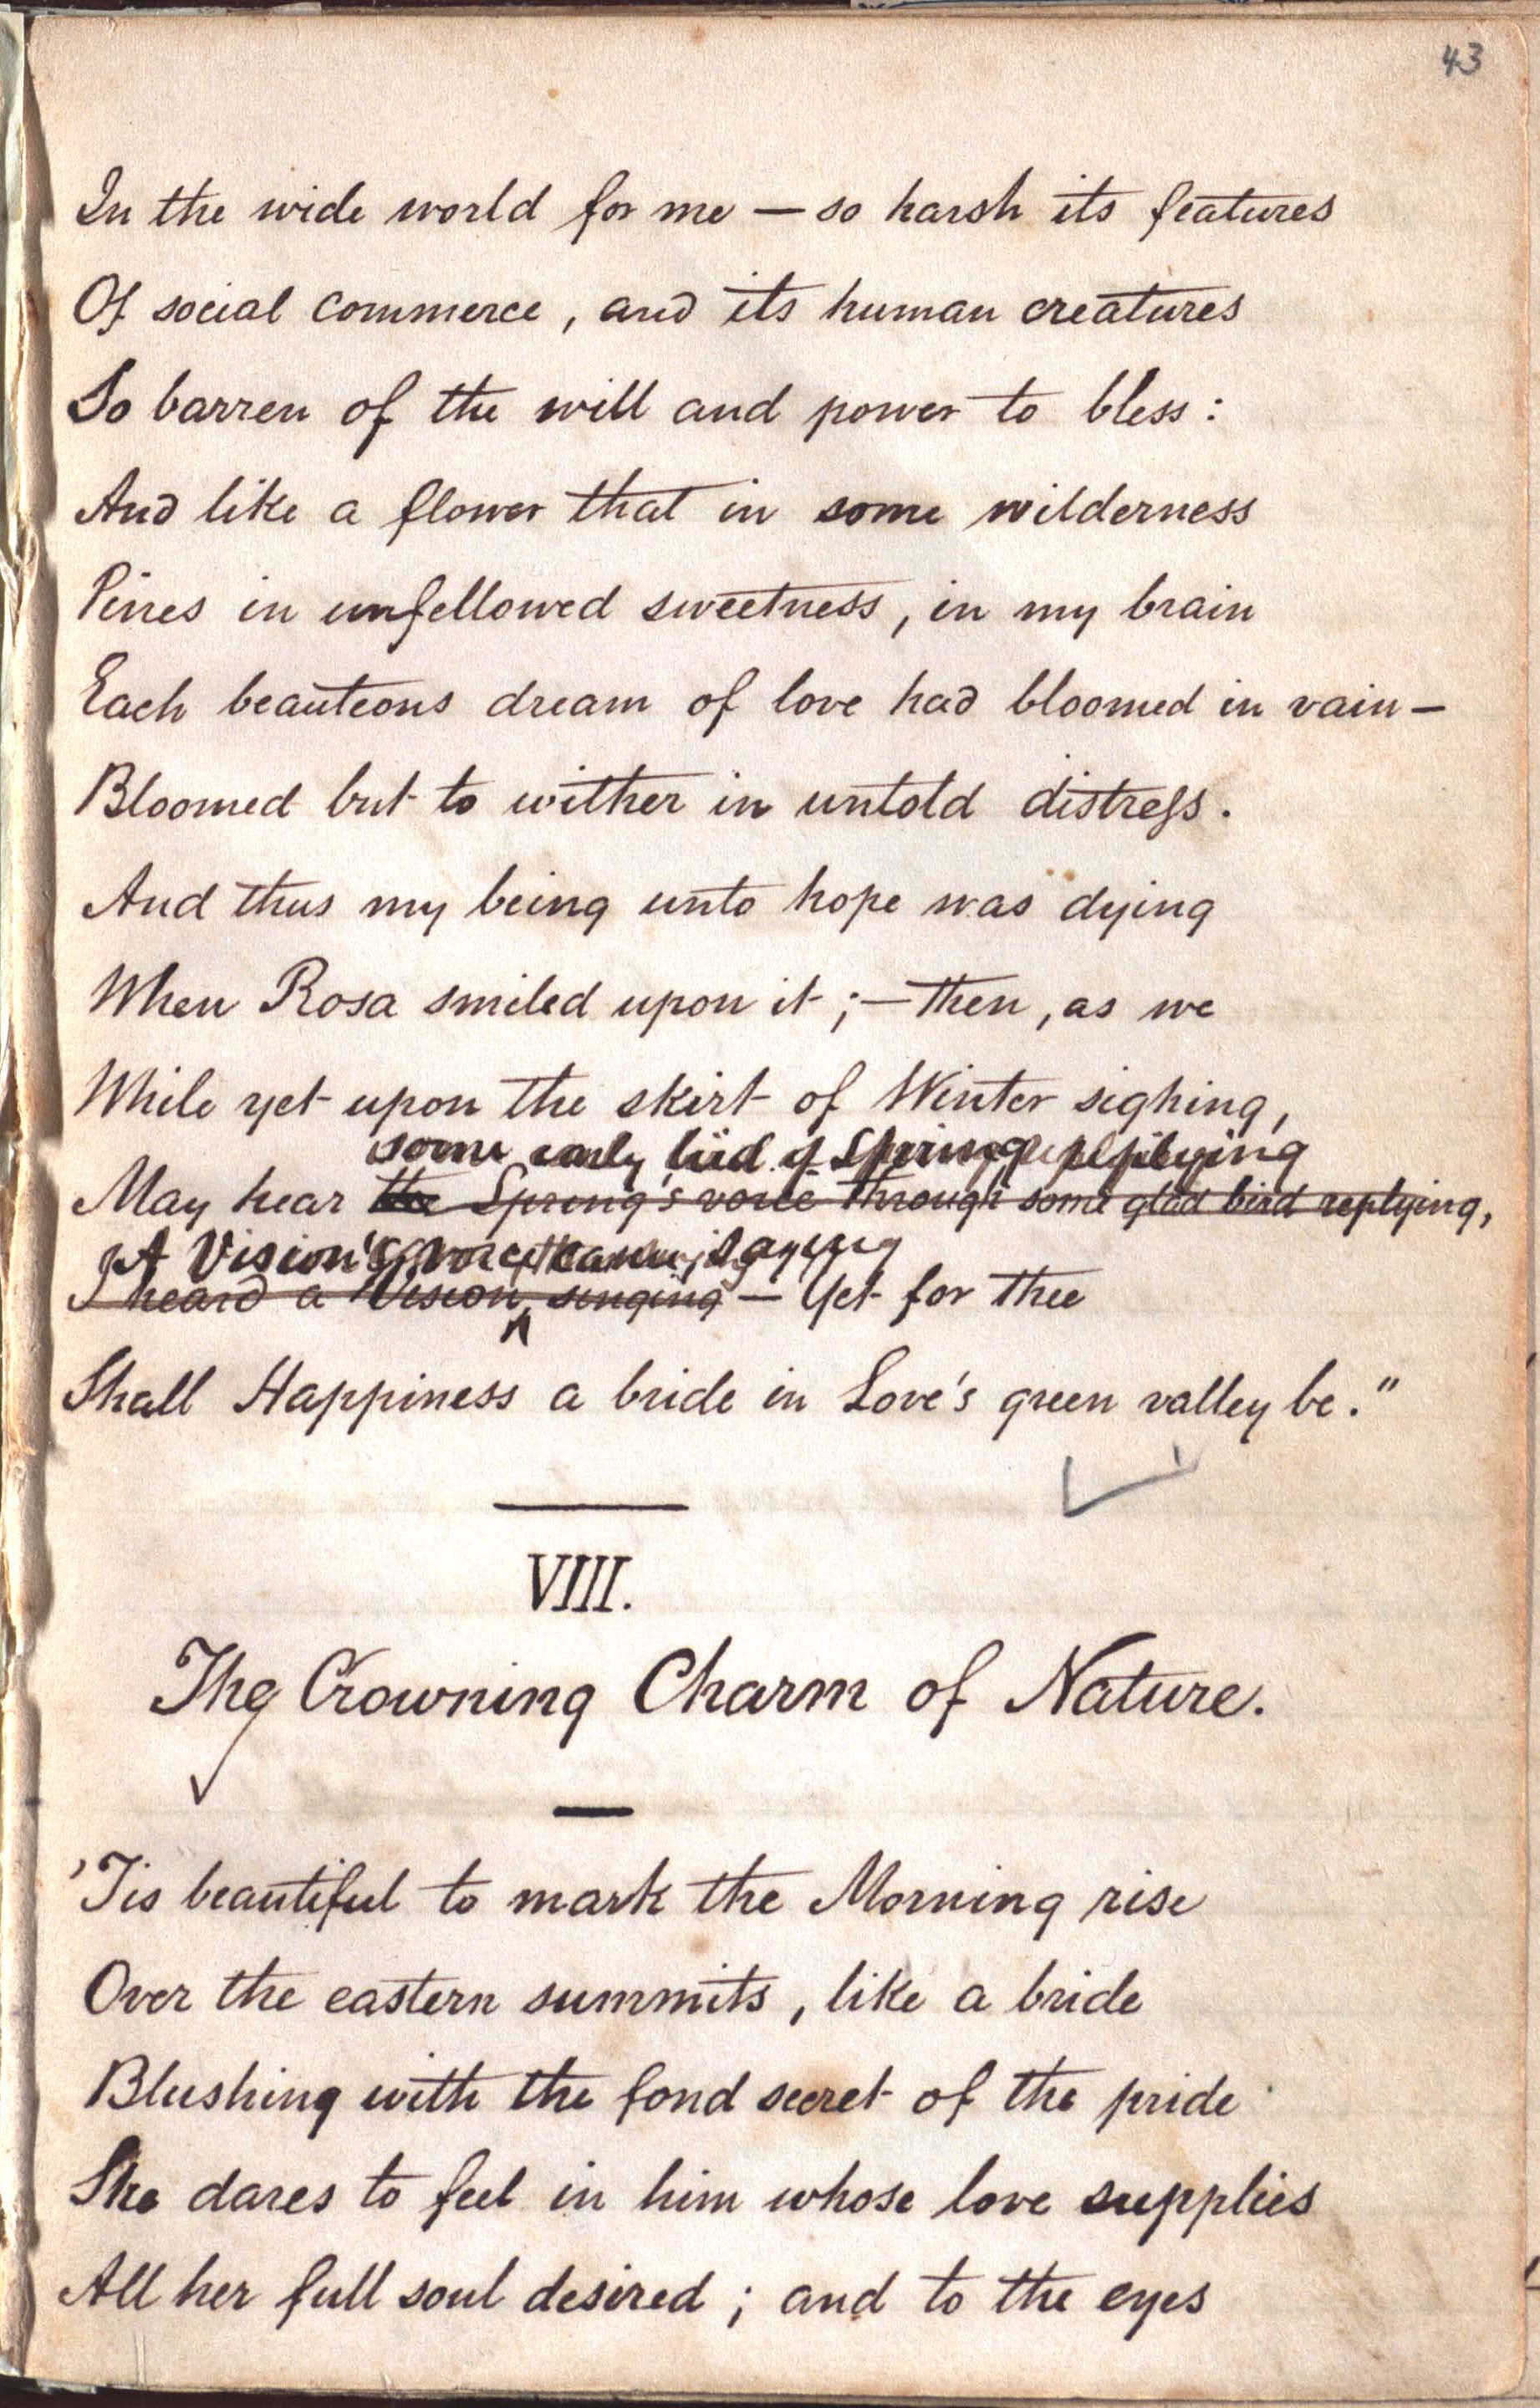 43
In the wide world for me — so harsh its features
Of social commerce, and its human creatures
So barren of the will and power to bless:
And like a flower that in some wilderness
Pines in unfellowed sweetness, in my brain
Each beauteous dream of love had bloomed in vain —
Bloomed but to wither in untold distress.
And thus my being unto hope was dying
When Rosa smiled upon it; — then, as we
While yet upon the skirt of Winter sighing,
some early bird of Spring replying
May hear the Spring's voice through some glad bird replying,
A Vision's voice came, saying
I heard a Vision singing — Yet for thee
Shall Happiness a bride in Love's green valley be."
VIII.
The Crowning Charm of Nature.
'Tis beautiful to mark the Morning rise
Over the eastern summits, like a bride
Blushing with the fond secret of the pride
She dares to feel in him whose love supplies
All her full soul desired; and to the eyes